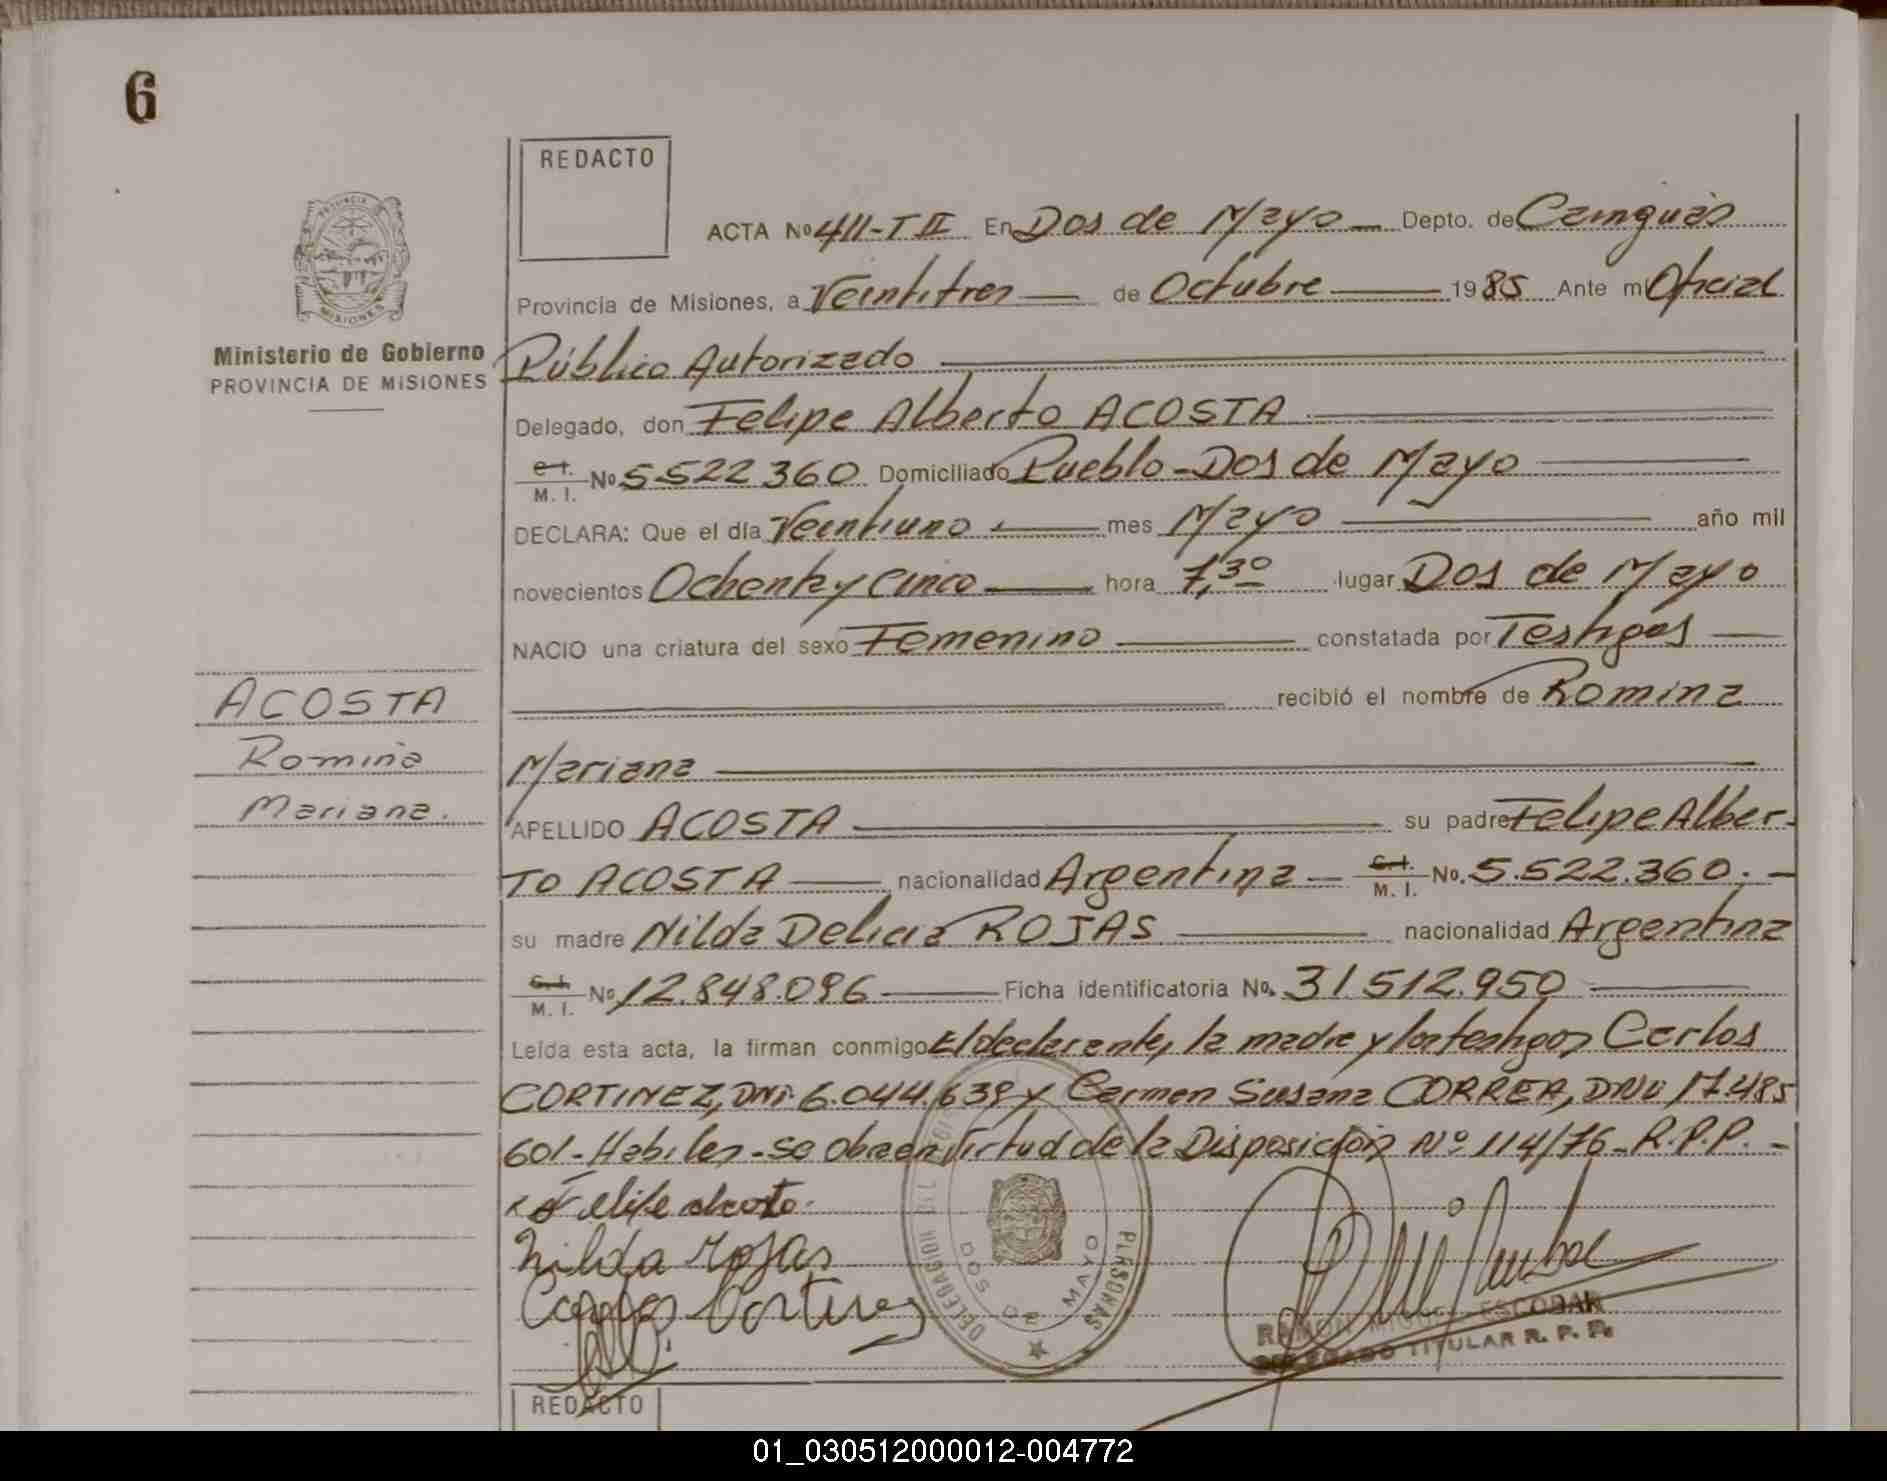 6
REDACTO
PROVINCIA DE
MISIONES
Ministerio de Gobierno
PROVINCIA DE MISIONES
ACTA Nº 411-T II En Dos de Mayo Depto. de Cainguás
Provincia de Misiones, a Veintitres de Octubre 1985 Ante mi Oficial
Público Autorizado
Delegado, don Felipe Alberto ACOSTA
C.I. M. I. Nº 5.522.360 Domiciliado Pueblo-Dos de Mayo
DECLARA: Que el día Veintiuno mes Mayo año mil
novecientos Ochenta y Cinco hora 7,30 lugar Dos de Mayo
NACIO una criatura del sexo Femenino constatada por Testigos
recibió el nombre de Romina
Mariana
APELLIDO ACOSTA su padre Felipe Alber-
TO ACOSTA nacionalidad Argentina C.I. M. I. No. 5.522.360.-
su madre Nilda Delicia ROJAS nacionalidad Argentina
C.I. M. I. Nº 12.848.096 Ficha identificatoria No. 31.512.950
Leída esta acta, la firman conmigo El declarante, la madre y los testigos Carlos
CORTINEZ, DNI 6.044.639 y Carmen Susana CORREA, DNI 17.485
601.- Habiles.- se obra en virtud de la Disposición Nº 114/76-R.P.P.-
ACOSTA
Romina
Mariana.
Nilda Rojas
Carlos Cortinez
DELEGACION DEL PERSONAS
DOS DE MAYO
RAMON MIGUEL ESCOBAR
DELEGADO TITULAR R. P. P.
REDACTO
01_030512000012-004772